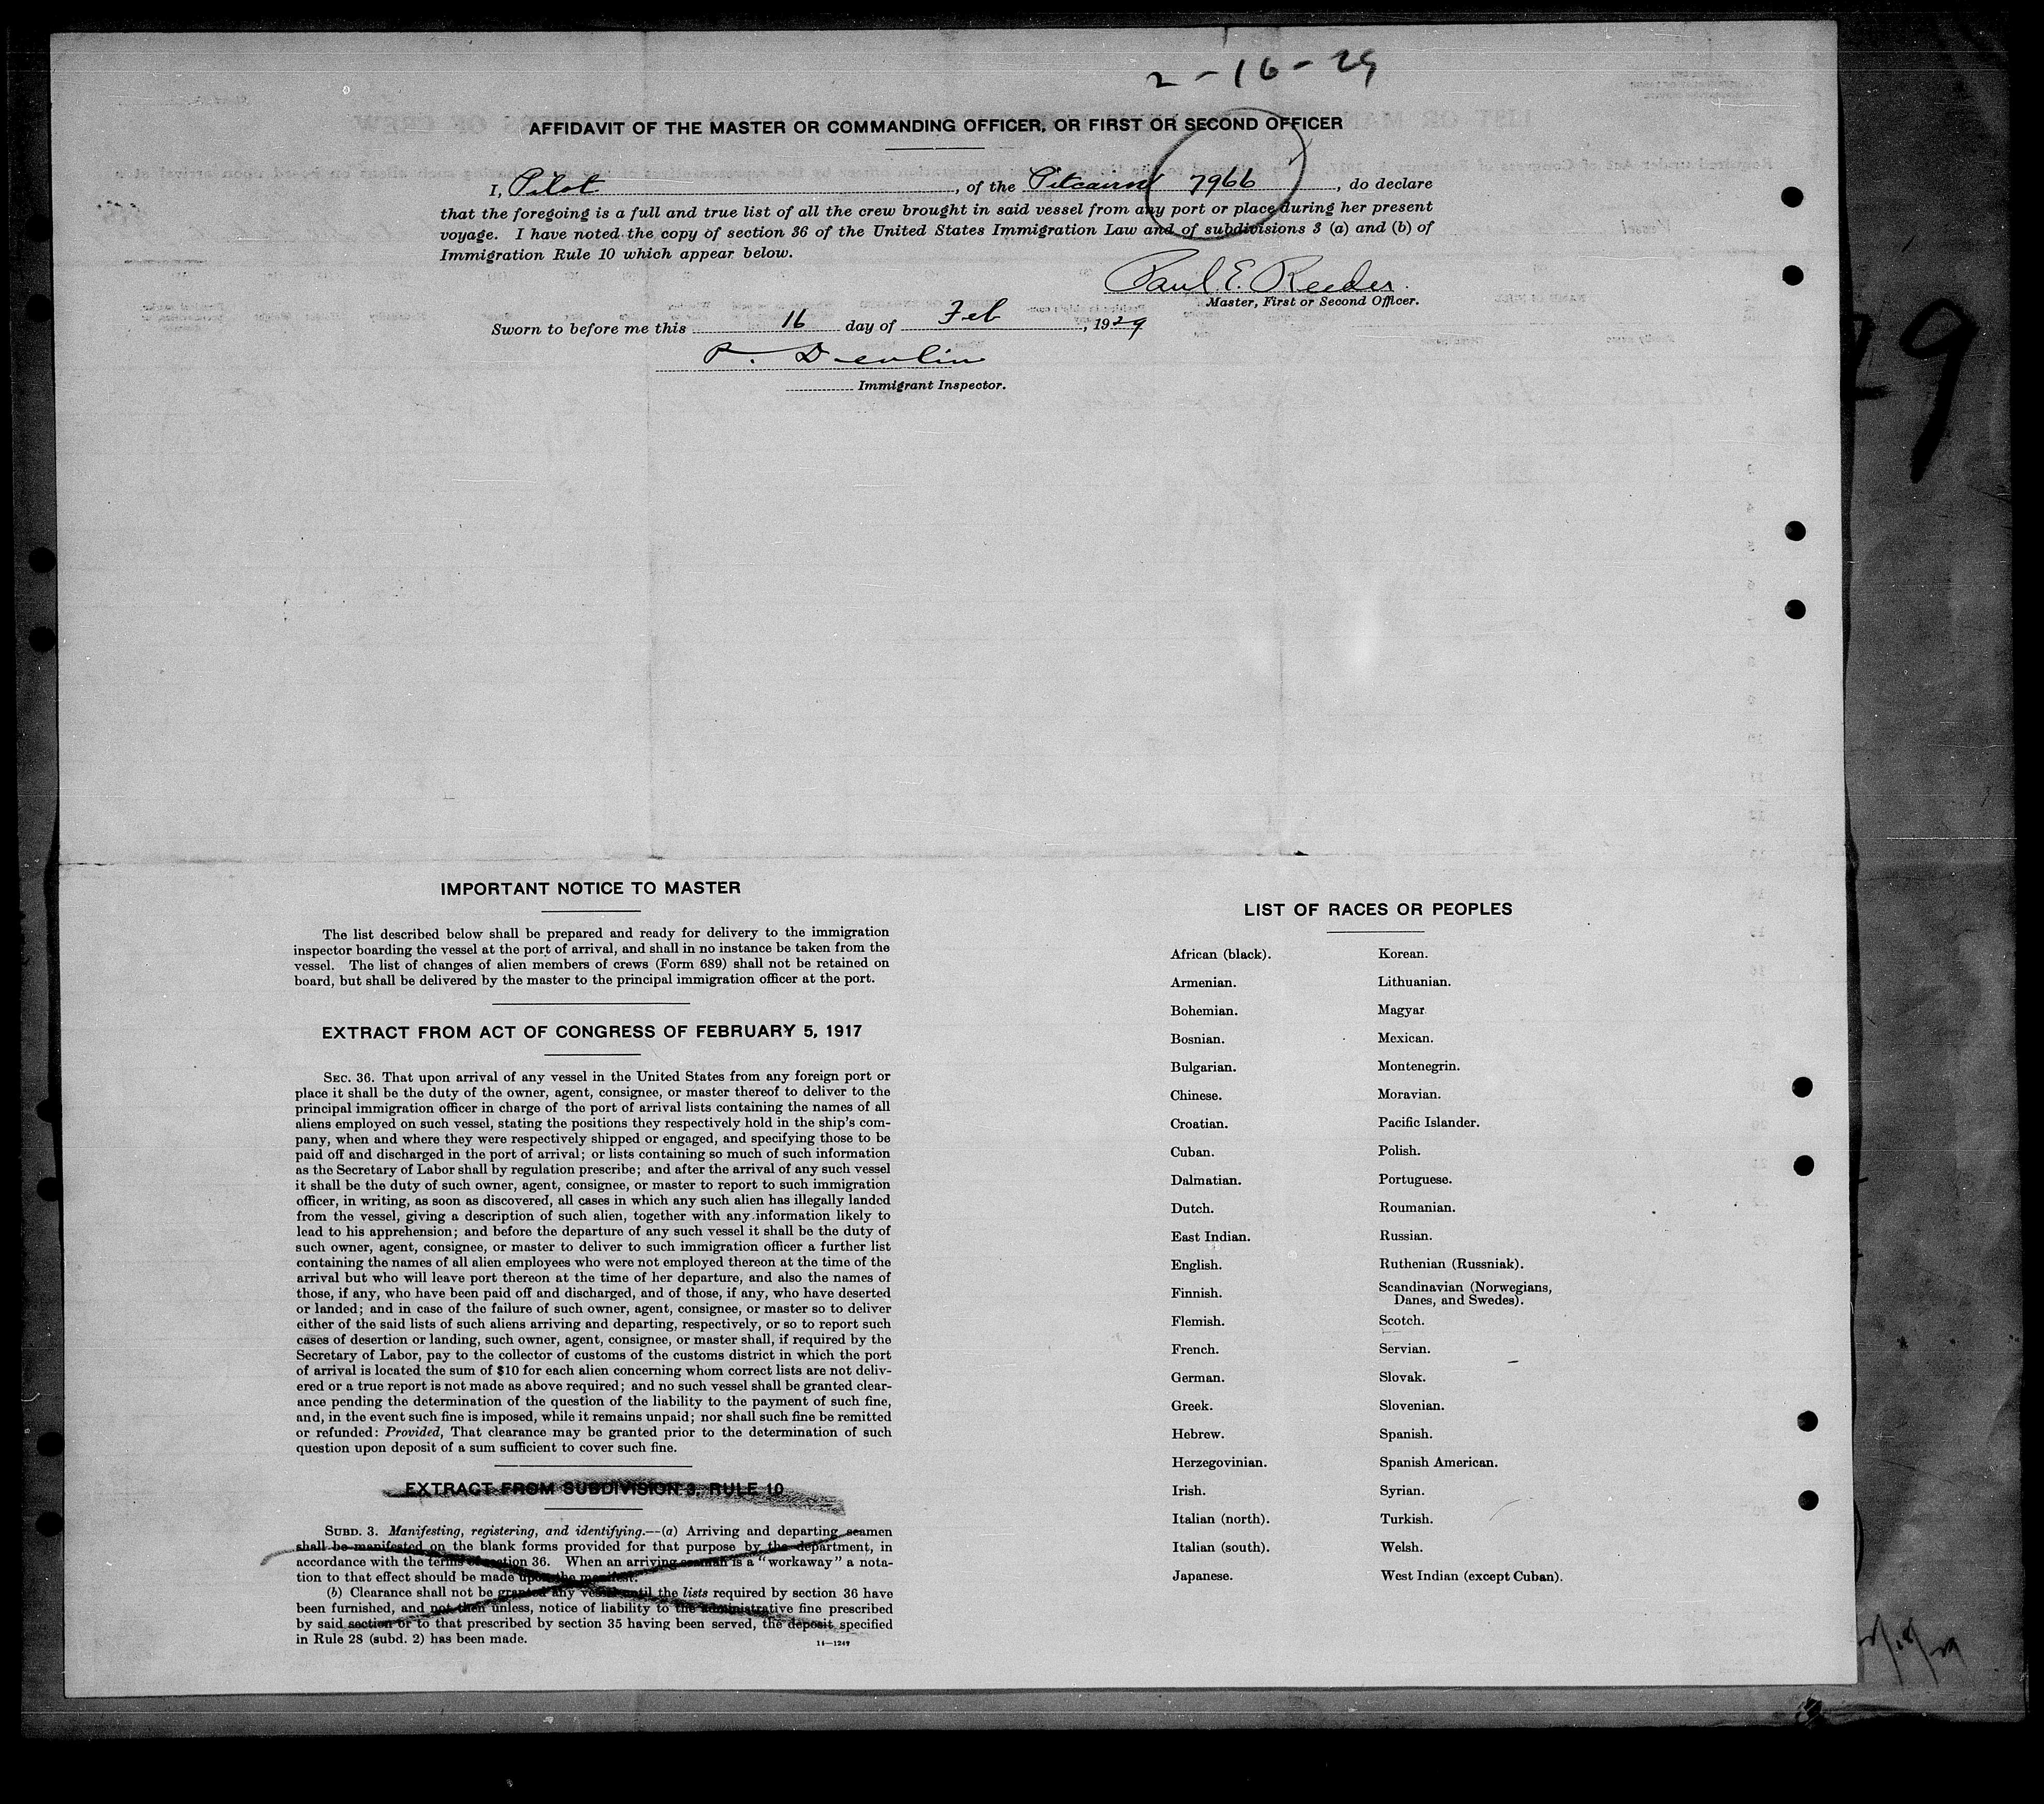 2-16-29
AFFIDAVIT OF THE MASTER OR COMMANDING OFFICER, OR FIRST OR SECOND OFFICER
I, Pilot, of the Pitcairn 7966, do declare
that the foregoing is a full and true list of all the crew brought in said vessel from any port or place during her present
voyage. I have noted the copy of section 36 of the United States Immigration Law and of subdivisions 3 (a) and (b) of
Immigration Rule 10 which appear below.
Paul E. Reeder.
Master, First or Second Officer.
Sworn to before me this 16 day of Feb, 1929
P. Devlin
Immigrant Inspector.
IMPORTANT NOTICE TO MASTER
The list described below shall be prepared and ready for delivery to the immigration
inspector boarding the vessel at the port of arrival, and shall in no instance be taken from the
vessel. The list of changes of alien members of crews (Form 689) shall not be retained on
board, but shall be delivered by the master to the principal immigration officer at the port.
EXTRACT FROM ACT OF CONGRESS OF FEBRUARY 5, 1917
SEC. 36. That upon arrival of any vessel in the United States from any foreign port or
place it shall be the duty of the owner, agent, consignee, or master thereof to deliver to the
principal immigration officer in charge of the port of arrival lists containing the names of all
aliens employed on such vessel, stating the positions they respectively hold in the ship's com-
pany, when and where they were respectively shipped or engaged, and specifying those to be
paid off and discharged in the port of arrival; or lists containing so much of such information
as the Secretary of Labor shall by regulation prescribe; and after the arrival of any such vessel
it shall be the duty of such owner, agent, consignee, or master to report to such immigration
officer, in writing, as soon as discovered, all cases in which any such alien has illegally landed
from the vessel, giving a description of such alien, together with any information likely to
lead to his apprehension; and before the departure of any such vessel it shall be the duty of
such owner, agent, consignee, or master to deliver to such immigration officer a further list
containing the names of all alien employees who were not employed thereon at the time of the
arrival but who will leave port thereon at the time of her departure, and also the names of
those, if any, who have been paid off and discharged, and of those, if any, who have deserted
or landed; and in case of the failure of such owner, agent, consignee, or master so to deliver
either of the said lists of such aliens arriving and departing, respectively, or so to report such
cases of desertion or landing, such owner, agent, consignee, or master shall, if required by the
Secretary of Labor, pay to the collector of customs of the customs district in which the port
of arrival is located the sum of $10 for each alien concerning whom correct lists are not deliv-
ered or a true report is not made as above required; and no such vessel shall be granted clear-
ance pending the determination of the question of the liability to the payment of such fine,
and, in the event such fine is imposed, while it remains unpaid; nor shall such fine be remitted
or refunded: Provided, That clearance may be granted prior to the determination of such
question upon deposit of a sum sufficient to cover such fine.
EXTRACT FROM SUBDIVISION 3, RULE 10
SUBD. 3. Manifesting, registering, and identifying.—(a) Arriving and departing seamen
shall be manifested on the blank forms provided for that purpose by the department, in
accordance with the terms of section 36. When an arriving seaman is a "workaway" a nota-
tion to that effect should be made upon the manifest.
(b) Clearance shall not be granted any vessel until the lists required by section 36 have
been furnished, and not then unless, notice of liability to the administrative fine prescribed
by said section or to that prescribed by section 35 having been served, the deposit specified
in Rule 28 (subd. 2) has been made.
14—1249
LIST OF RACES OR PEOPLES
African (black).
Armenian.
Bohemian.
Bosnian.
Bulgarian.
Chinese.
Croatian.
Cuban.
Dalmatian.
Dutch.
East Indian.
English.
Finnish.
Flemish.
French.
German.
Greek.
Hebrew.
Herzegovinian.
Irish.
Italian (north).
Italian (south).
Japanese.
Korean.
Lithuanian.
Magyar
Mexican.
Montenegrin.
Moravian.
Pacific Islander.
Polish.
Portuguese.
Roumanian.
Russian.
Ruthenian (Russniak).
Scandinavian (Norwegians,
Danes, and Swedes).
Scotch.
Servian.
Slovak.
Slovenian.
Spanish.
Spanish American.
Syrian.
Turkish.
Welsh.
West Indian (except Cuban).